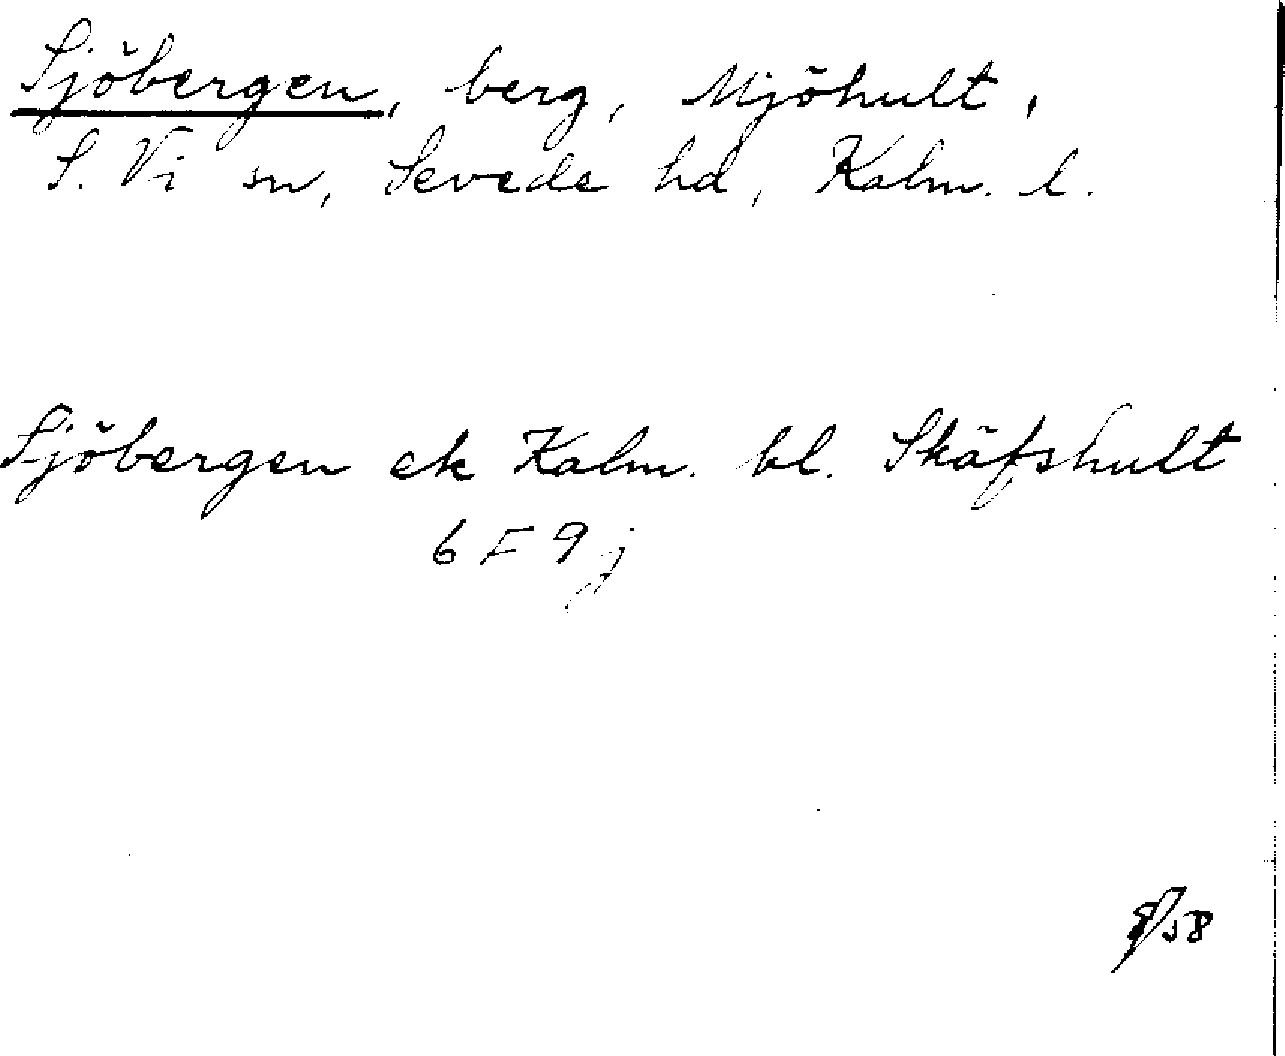 Sjöbergen, berg, Mjöhult,
S. Vi sn, Sevede hd, Kalm. l.
Sjöbergen ek Kalm. bl. Skäfshult
6 F 9 j
/58